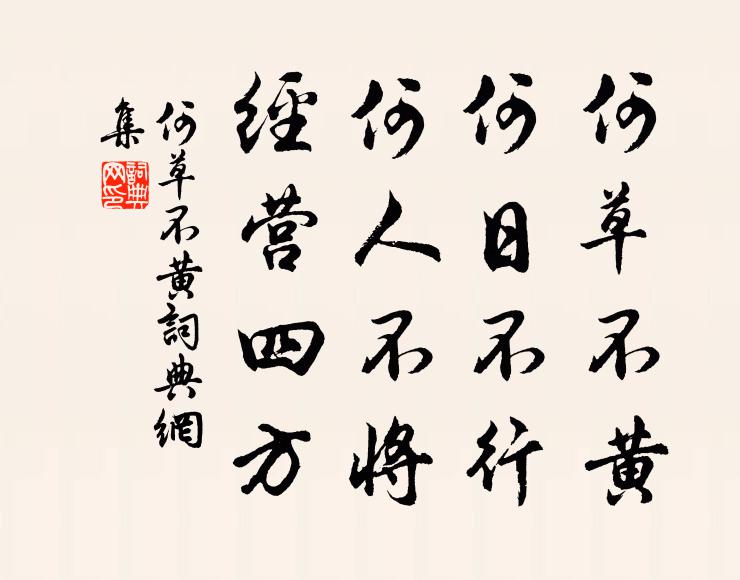 何草不黄
何日不行
何人不將
經营四方
何草不黄詞典網
集
詞典
网印